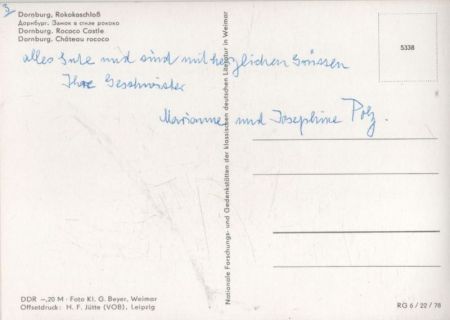 3
Dornburg, Rokokoschloß
Дорнбург. Замок в стиле рококо
Dornburg. Rococo Castle
Dornburg. Château rococo
5338
alles Gute und sind mit herzlichen Grüssen
Ihre Geschwister
Marianne und Josephine Polz.
Nationale Forschungs- und Gedenkstätten der klassischen deutschen Literatur in Weimar
DDR –,20 M · Foto Kl. G. Beyer, Weimar
Offsetdruck: H. F. Jütte (VOB), Leipzig
RG 6/22/78